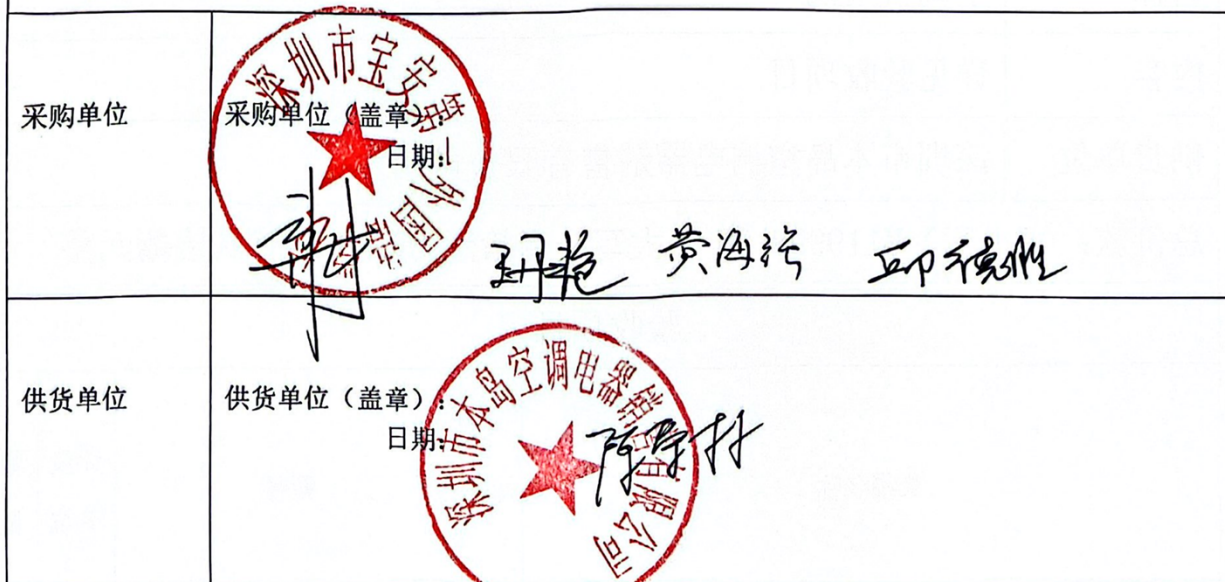 采购单位
采购单位（盖章）:
日期:
深圳市宝安第一外国语
黄海
邱德胜
供货单位
供货单位（盖章）:
日期:
深圳市本岛空调电器销售有限公司